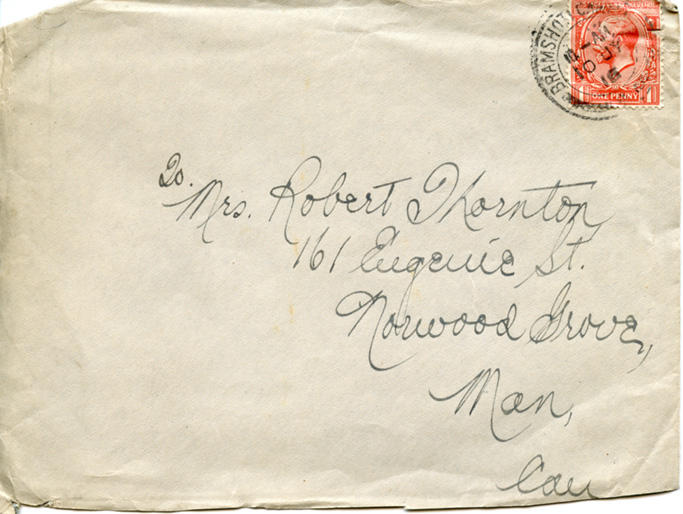 BRAMSHOTT
11-AM
10 JY
16
ONE PENNY
1 1
To.
Mrs. Robert Thornton,
161 Eugenie St.
Norwood Grove,
Man,
Can